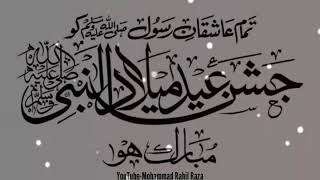 تمام عاشقان رسول ﷺ کو
جشن عید میلاد النبی ﷺ
مبارک ہو
YouTube-Mohammad Rahil Raza